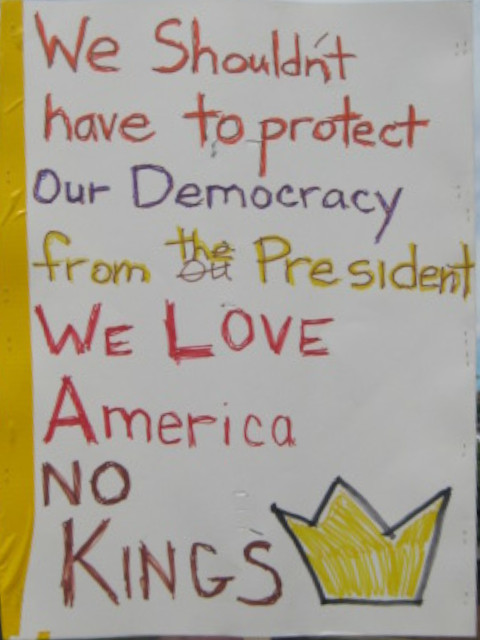 We Shouldn't
have to protect
Our Democracy
from the President
WE LOVE
America
NO
KINGS